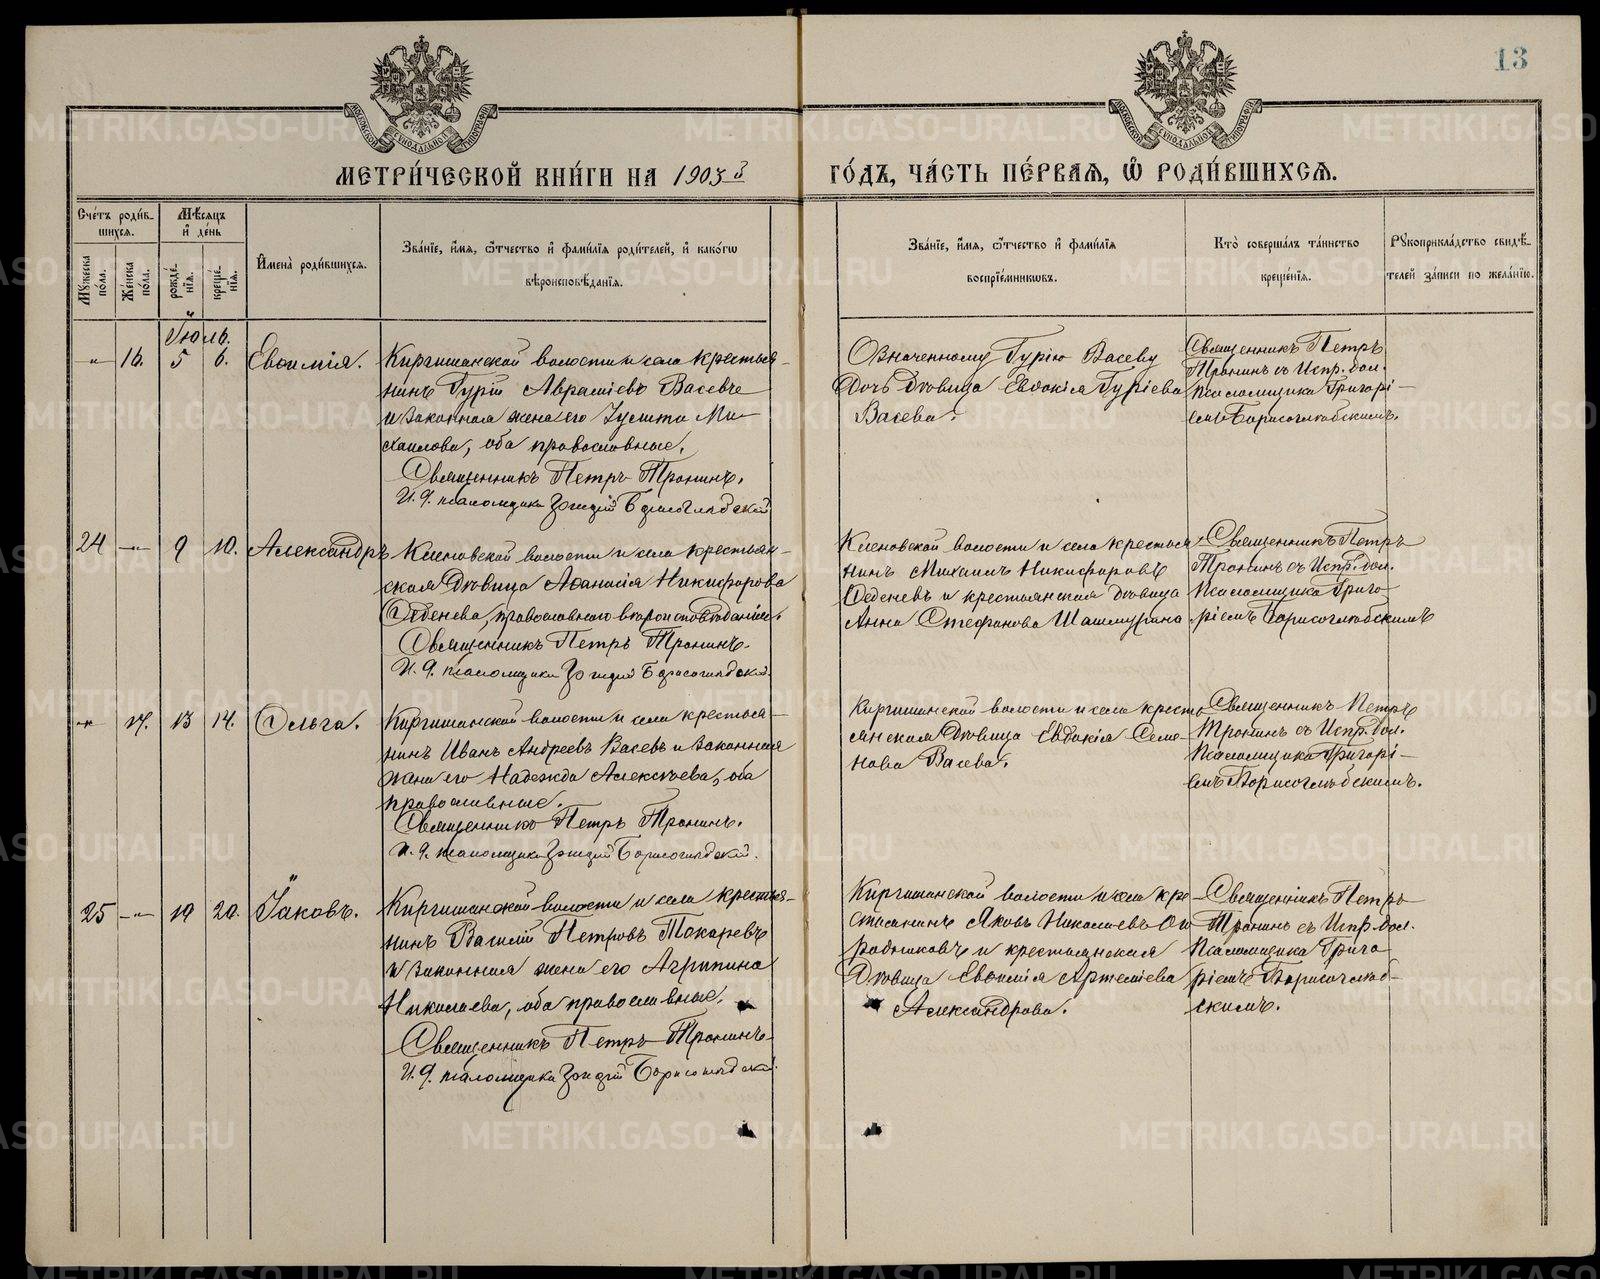 13
МЕТРИ́ЧЕСКОЙ КНИ́ГИ НА 1903й ГО́ДЪ, ЧА́СТЬ ПЕ́РВАѦ, Ѽ РОДИ́ВШИХСѦ.
Сче́тъ роди́в-
шихся.
Мѣ́сяцъ
и҆ де́нь
Мꙋ́жеска по́ла.
Же́нска по́ла.
рожде́нїѧ.
креще́нїѧ.
И҆мена̀ роди́вшихсѧ.
Зва́нїе, и҆́мѧ, ѻ҆́тчество и҆ фами́лїѧ роди́телей, и҆ како́гѡ
вѣроисповѣ́данїѧ.
Зва́нїе, и҆́мѧ, ѻ҆́тчество и҆ фами́лїѧ
воспрїе́мникѡвъ.
Кто̀ соверша́лъ та́инство
креще́нїѧ.
Рꙋкоприкла́дство свидѣ́-
телей за́писи по жела́нїю.
Іюль.
-"- 16. 5 6. Евѳимія.
Киргишанской волости и села крестья-
нинъ Гурій Авраміевъ Васевъ
и законная жена его Іустина Ми-
хаилова, оба православные.
Священникъ Петръ Тронинъ.
И. д. псаломщика Григорій Борисоглѣбскій
Означенному Гурію Васеву
дочь дѣвица Евдокія Гуріева
Васева.
Священникъ Петръ
Тронинъ съ Испр. дол.
псаломщика Григорі-
емъ Борисоглѣбскимъ.
24 -"- 9 10. Александръ
Кленовской волости и села крестьян-
ская дѣвица Аѳанасія Никифорова
Деденева, православнаго вѣроисповѣданія.
Священникъ Петръ Тронинъ.
И. д. псаломщика Григорій Борисоглѣбскій.
Кленовской волости и села крестья-
нинъ Михаилъ Никифоровъ
Деденевъ и крестьянская дѣвица
Анна Стефанова Шашмурина
Священникъ Петръ
Тронинъ съ Испр. дол.
Псаломщика Григо-
ріемъ Борисоглѣбскимъ
-"- 17. 13 14. Ольга.
Киргишанской волости и села крестья-
нинъ Иванъ Андреевъ Васевъ и законная
жена его Надежда Алексѣева, оба
православные.
Священникъ Петръ Тронинъ.
И. д. псаломщика Григорій Борисоглѣбскій.
Киргишанской волости и села кресть-
янская дѣвица Евдокія Семе-
нова Васева.
Священникъ Петръ
Тронинъ съ Испр. дол.
Псаломщика Григорі-
емъ Борисоглѣбскимъ.
25 -"- 19 20. Іаковъ.
Киргишанской волости и села крестья-
нинъ Василій Петровъ Токаревъ
и законная жена его Агрипина
Николаева, оба православные.
Священникъ Петръ Тронинъ
И. д. псаломщика Григорій Борисоглѣбскій.
Киргишанской волости и села кре-
стьянинъ Яковъ Николаевъ Ого-
родниковъ и крестьянская
дѣвица Евѳимія Артеміева
Александрова.
Священникъ Петръ
Тронинъ съ Испр. дол.
Псаломщика Григо-
ріемъ Борисоглѣб-
скимъ.